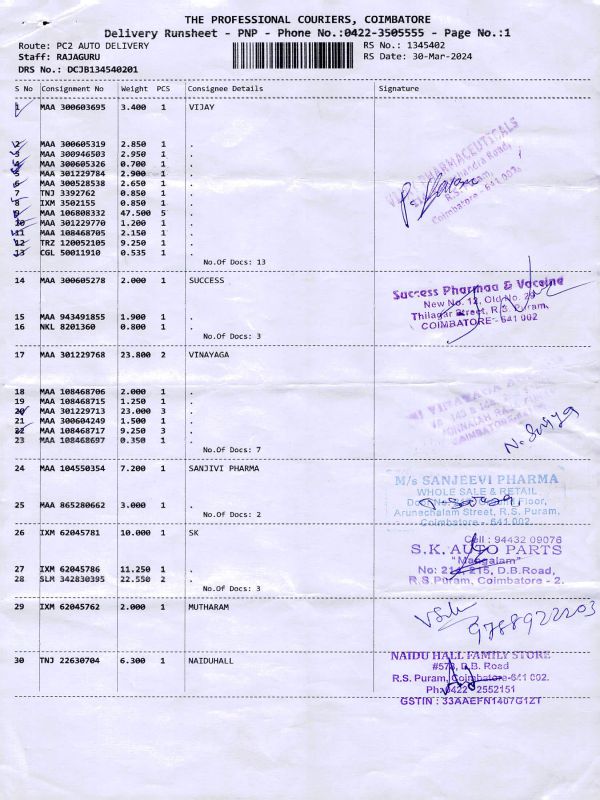 THE PROFESSIONAL COURIERS, COIMBATORE
Delivery Runsheet - PNP - Phone No.:0422-3505555 - Page No.:1
Route: PC2 AUTO DELIVERY RS No.: 1345402
Staff: RAJAGURU RS Date: 30-Mar-2024
DRS No.: DCJB134540201
S No Consignment No Weight PCS Consignee Details Signature
1 MAA 300603695 3.400 1 VIJAY
2 MAA 300605319 2.850 1 .
3 MAA 300946503 2.950 1 .
4 MAA 300605326 0.700 1 .
5 MAA 301229784 2.900 1 .
6 MAA 300528538 2.650 1 .
7 TNJ 3392762 0.850 1 .
8 IXM 3502155 0.850 1 .
9 MAA 106808332 47.500 5 .
10 MAA 301229770 1.200 1 .
11 MAA 108468705 2.150 1 .
12 TRZ 120052105 9.250 1 .
13 CGL 50011910 0.535 1 .
No.Of Docs: 13
PHARMACEUTICALS
Road,
R.S. Puram,
Coimbatore - 641
14 MAA 300605278 2.000 1 SUCCESS
15 MAA 943491855 1.900 1 .
16 NKL 8201360 0.800 1 .
No.Of Docs: 3
Success Pharmaa & Vaccine
New No. 12, Old No. 29
Thilagar Street, R.S. Puram,
COIMBATORE - 641 002
17 MAA 301229768 23.800 2 VINAYAGA
18 MAA 108468706 2.000 1 .
19 MAA 108468715 1.250 1 .
20 MAA 301229713 23.000 3 .
21 MAA 300604249 1.500 1 .
22 MAA 108468717 9.250 3 .
23 MAA 108468697 0.350 1 .
No.Of Docs: 7
VINAYAGA
24 MAA 104550354 7.200 1 SANJIVI PHARMA
25 MAA 865280662 3.000 1 .
No.Of Docs: 2
M/s SANJEEVI PHARMA
WHOLE SALE & RETAIL
Floor,
Arunachalam Street, R.S. Puram,
Coimbatore - 641 002
26 IXM 62045781 10.000 1 SK
27 IXM 62045786 11.250 1 .
28 SLM 342830395 22.550 2 .
No.Of Docs: 3
Cell : 94432 09076
S.K. AUTO PARTS
"Mangalam"
No: 214, 215, D.B.Road,
R.S Puram, Coimbatore - 2.
29 IXM 62045762 2.000 1 MUTHARAM
9788922203
30 TNJ 22630704 6.300 1 NAIDUHALL
NAIDU HALL FAMILY STORE
D.B. Road
R.S. Puram, Coimbatore-641 002.
Ph:0422-2552151
GSTIN : 33AAEFN1407G1ZT